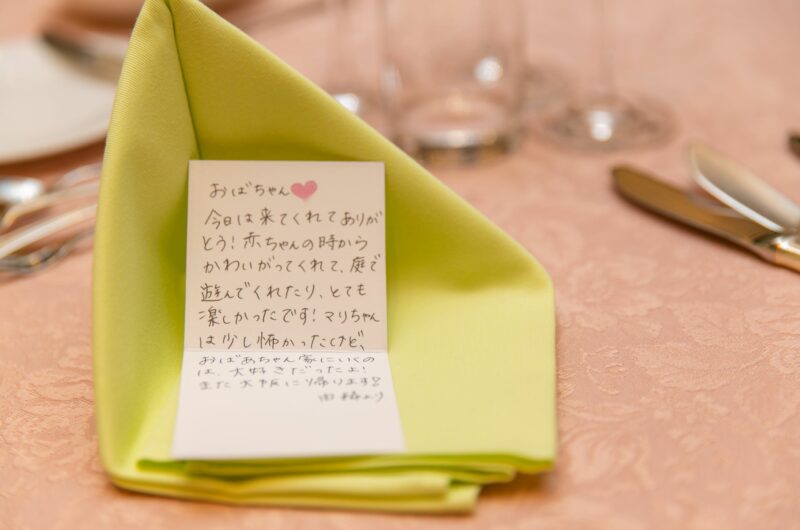 おばちゃん
今日は来てくれてありが
とう！赤ちゃんの時から
かわいがってくれて、庭で
遊んでくれたり、とても
楽しかったです！マリちゃん
は少し怖かったけど、
おばあちゃん家にいくの
は、大好きだったよ！
また大阪に帰ります！
より